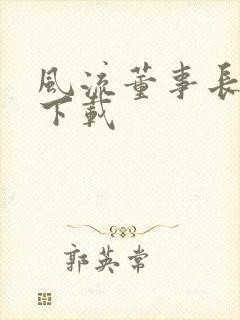 風流董事長
下載
郭英常